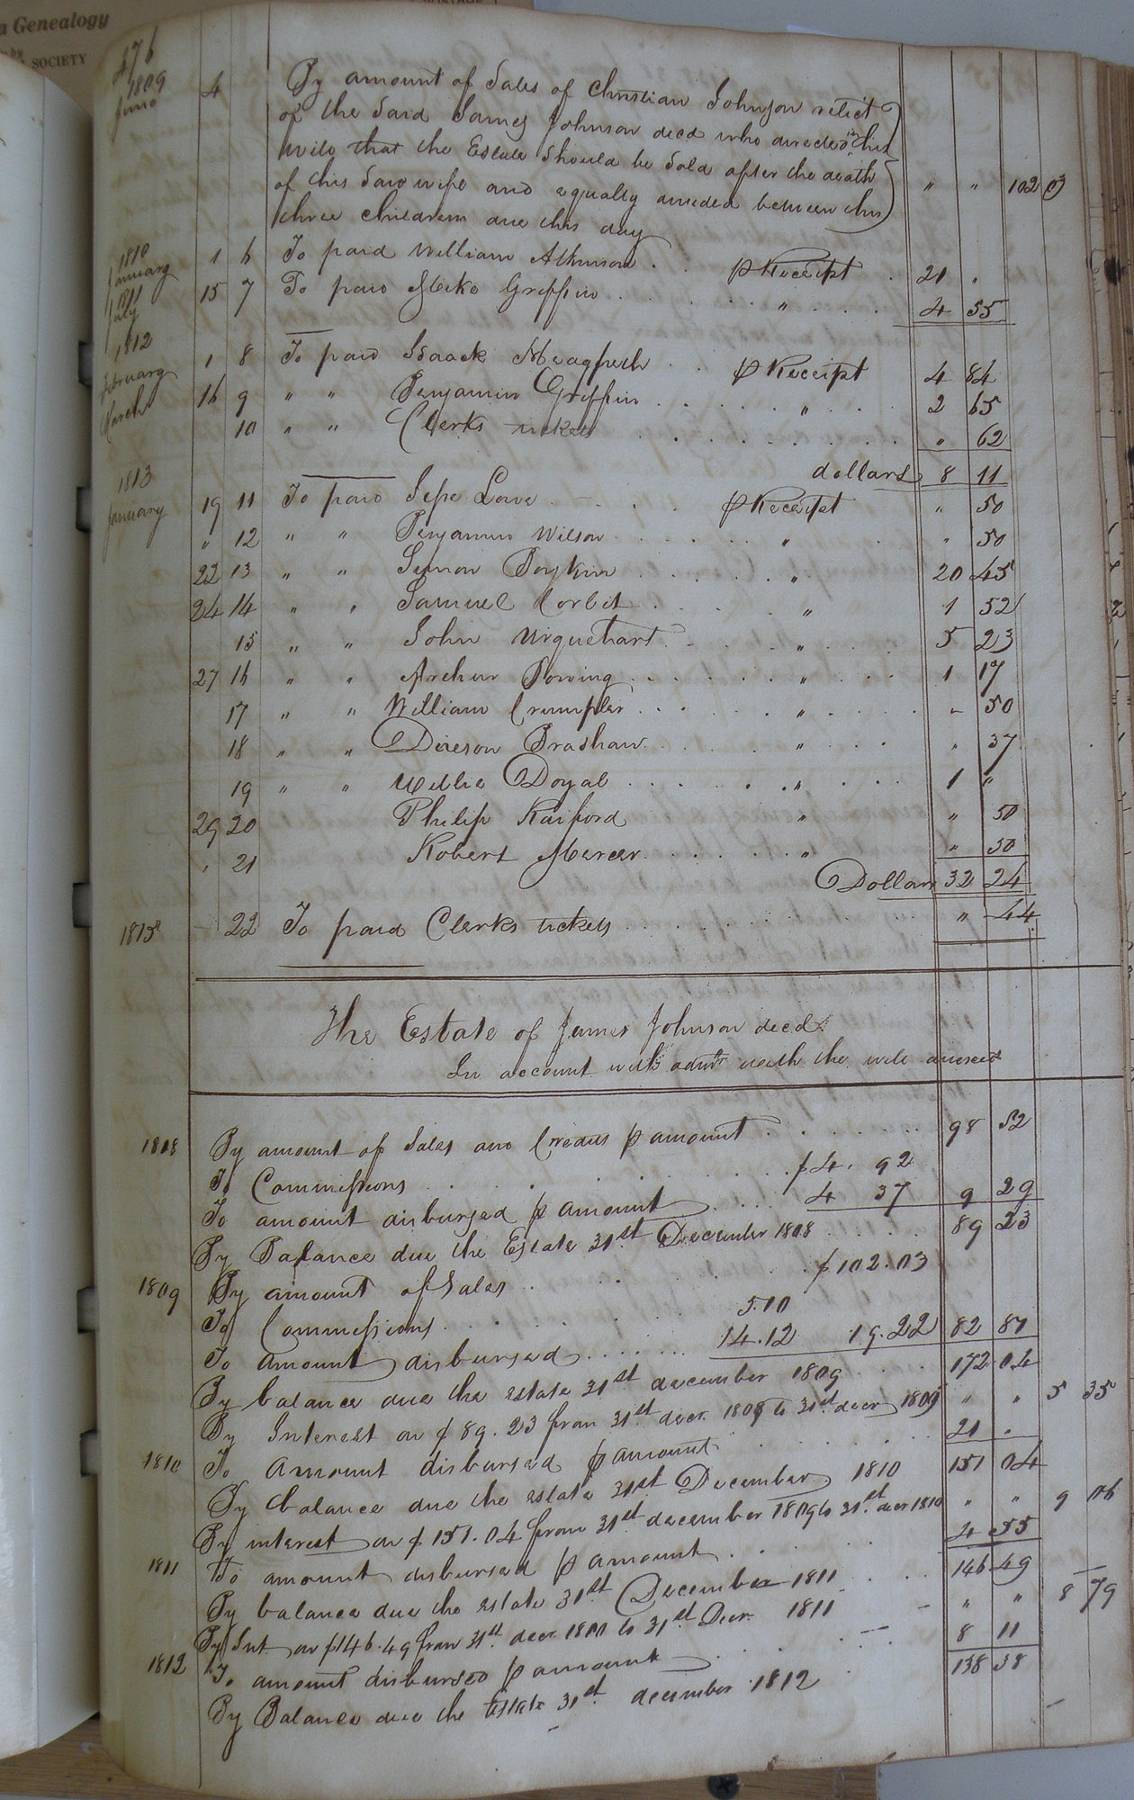 a Genealogy
SOCIETY
476
1809
June 4 By amount of Sales of Christian Johnson relict
of the Said James Johnson decd who directed in his
Will that the Estate Should be Sold after the death
of his Said wife and equally divided between his " " 102 03
three children due this day
1810
January 1 6 To paid William Atkinson . . p Receipt . 21 .
1811
July 15 7 To paid Griffin . . . . " . . . 4 55
1812
February 1 8 To paid Isaack . . p Receipt 4 84
March 16 9 " " Benjamin Griffin . . . . " . . 2 65
10 " " Clerks tickets . . . . . . . . " 62
dollars 8 11
1813
January 19 11 To paid Lowe . . . p Receipt " 50
" 12 " " Benjamin Wilson . . . . " . " 50
22 13 " " Simon Boykin . . . . . " 20 45
24 14 " " Samuel Corbit . . . . " 1 52
15 " " John Urquehart . . . . " . . . 5 23
27 16 " " Arthur Bowing . . . . . " . . . 1 17
17 " " William Crumpler . . . . . " . . . - 50
18 " " Bradshaw . . . . " . . . " 37
19 " " Doyal . . . . . " . . . 1 "
29 20 Philip Raiford " " 50
" 21 Robert Mercer . . . . . " " 50
Dollars 32 24
1815 22 To paid Clerks tickets . . . . . . " 44
The Estate of James Johnson decd
In account with admr with the will annexed
1808 By amount of Sales and Credits p amount . . . . . . 98 52
To Commissions . . . . . . . $4. 92
To amount disbursed p amount . . . 4 37 9 29
By Balance due the Estate 31st December 1808 . . . . 89 23
1809 By amount of Sales . . . . . $102.03
To Commissions . . . . . 5.10
To amount disbursed . . . . . 14.12 19.22 82 81
By balance due the estate 31st december 1809 . . . 172 04
By Interest on $89.23 from 31st decr. 1808 to 31st decr 1809 " " 5 35
1810 To Amount disbursed p amount . . . . . . . 21 .
By balance due the estate 31st December 1810 151 04
By interest on $151.04 from 31st december 1809 to 31st decr 1810 " " 9 06
1811 To amount disbursed p amount . . . . . 4 55
By balance due the estate 31st December 1811 . . . 146 49
By Int on $146.49 from 31st decr 1810 to 31st Decr 1811 - " " 8 79
1812 To amount disbursed p amount . . . 8 11
By Balance due the Estate 31st december 1812 138 38